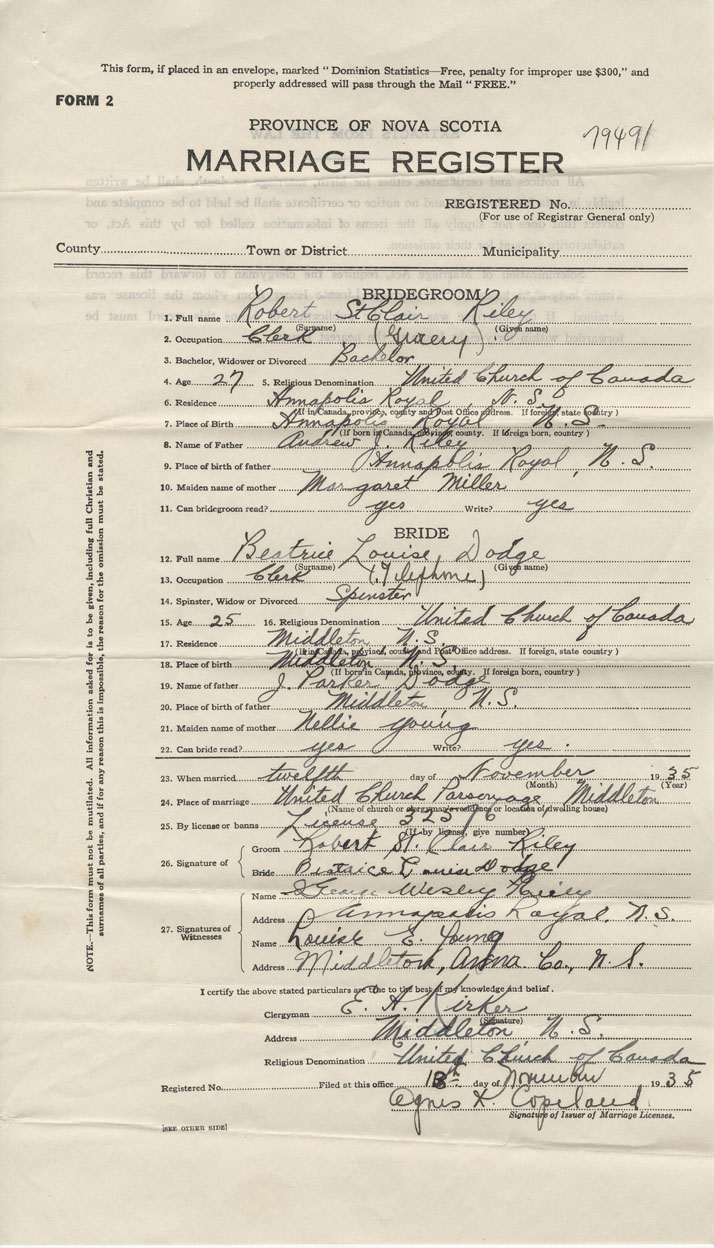 This form, if placed in an envelope, marked "Dominion Statistics—Free, penalty for improper use $300," and
properly addressed will pass through the Mail "FREE."
FORM 2
PROVINCE OF NOVA SCOTIA
79491
MARRIAGE REGISTER
REGISTERED No.
(For use of Registrar General only)
County Town or District Municipality
BRIDEGROOM
1. Full name Robert St Clair Riley
(Surname) (Given name)
2. Occupation Clerk (Grocery)
3. Bachelor, Widower or Divorced Bachelor
4. Age 27 5. Religious Denomination United Church of Canada
6. Residence Annapolis Royal, N.S.
(If in Canada, province, county and Post Office address. If foreign, state country)
7. Place of Birth Annapolis Royal N.S.
(If born in Canada, province, county. If foreign born, country)
8. Name of Father Andrew J. Riley
9. Place of birth of father Annapolis Royal, N.S.
10. Maiden name of mother Margaret Miller
11. Can bridegroom read? yes Write? yes
BRIDE
12. Full name Beatrice Louise Dodge
(Surname) (Given name)
13. Occupation Clerk (Telephone)
14. Spinster, Widow or Divorced Spinster
15. Age 25 16. Religious Denomination United Church of Canada
17. Residence Middleton N.S.
(If in Canada, province, county and Post Office address. If foreign, state country)
18. Place of birth Middleton N.S.
(If born in Canada, province, county. If foreign born, country)
19. Name of father J. Parker Dodge
20. Place of birth of father Middleton, N.S.
21. Maiden name of mother Nellie Young
22. Can bride read? yes Write? yes.
23. When married twelfth day of November 1935
(Month) (Year)
24. Place of marriage United Church Parsonage Middleton
(Name of church or clergyman's residence or location of dwelling house)
25. By license or banns License 32576
(If by license, give number)
26. Signature of
Groom Robert St. Clair Riley
Bride Beatrice Louise Dodge
27. Signatures of Witnesses
Name George Wesley Riley
Address Annapolis Royal, N.S.
Name Louise E. Young
Address Middleton, Anna Co., N.S.
I certify the above stated particulars are true to the best of my knowledge and belief.
Clergyman E. A. Kirker
(Signature)
Address Middleton N.S.
Religious Denomination United Church of Canada
Registered No. Filed at this office 13th day of November 1935
Agnes K. Copeland
Signature of Issuer of Marriage Licenses.
[SEE OTHER SIDE]
NOTE.—This form must not be mutilated. All information asked for is to be given, including full Christian and
surnames of all parties, and if for any reason this is impossible, the reason for the omission must be stated.